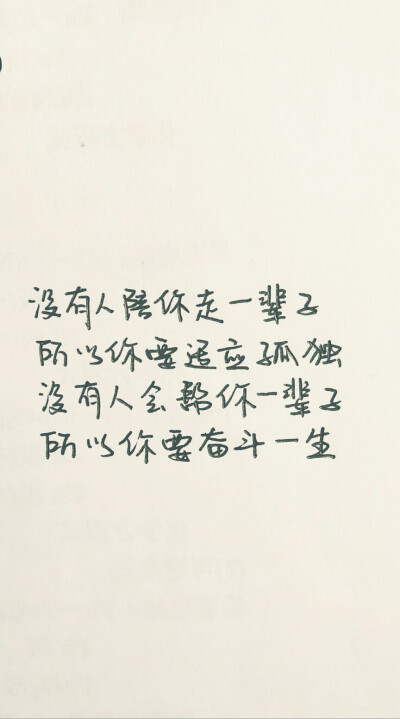 没有人陪你走一辈子
所以你要适应孤独
没有人会帮你一辈子
所以你要奋斗一生